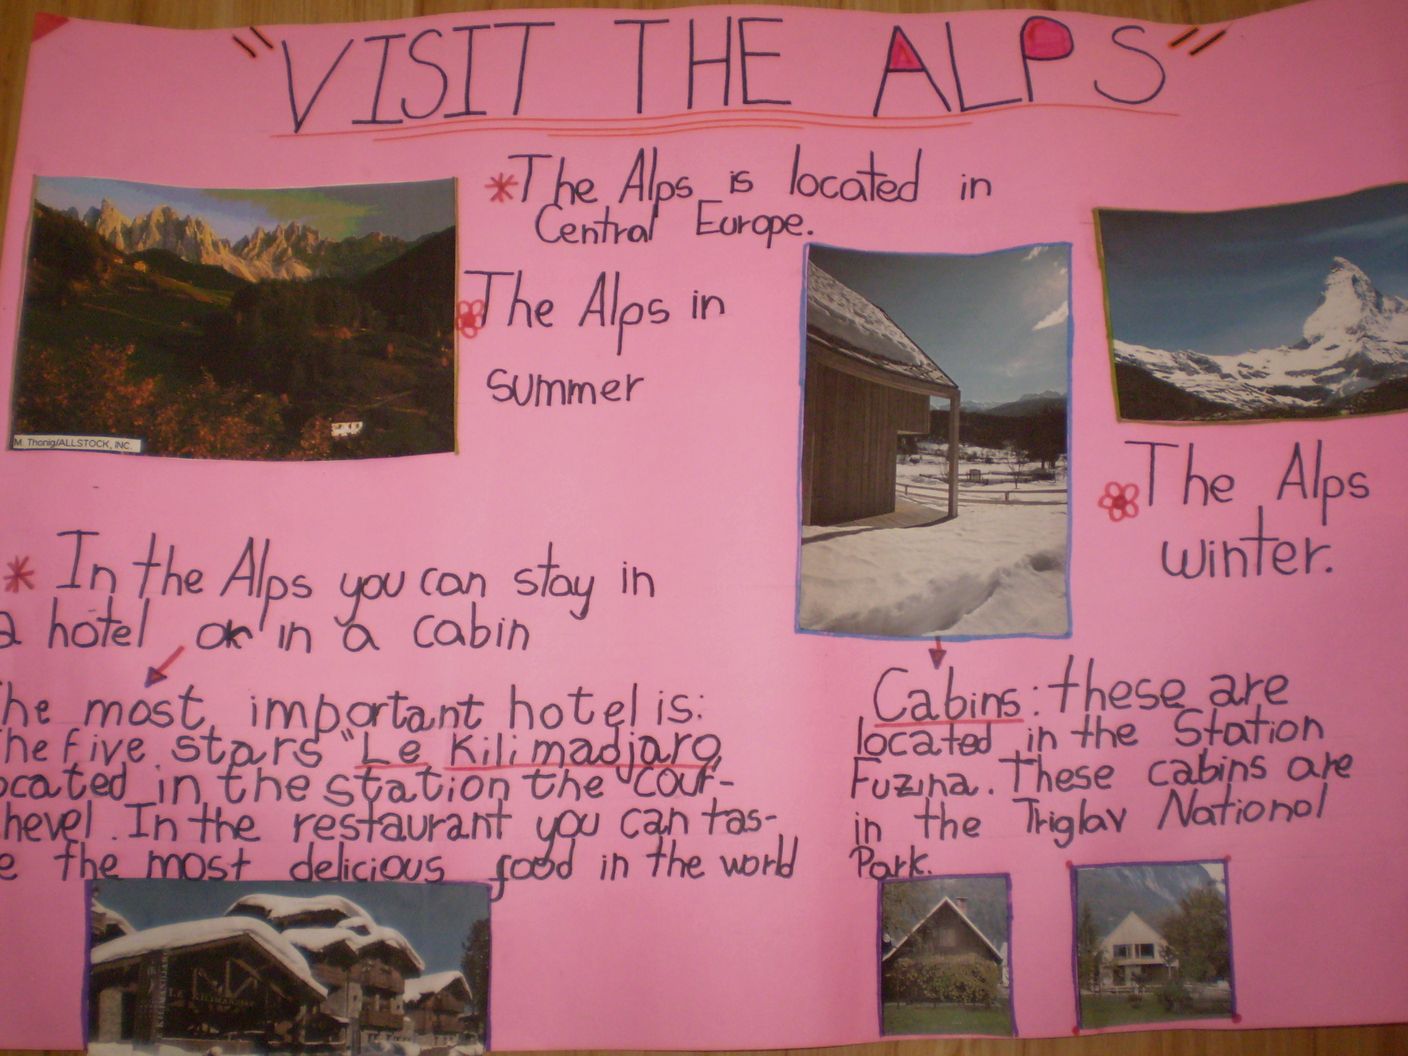 "VISIT THE ALPS"
The Alps is located in
Central Europe.
The Alps in
summer
M. Thonig/ALLSTOCK, INC.
The Alps
winter.
In the Alps you can stay in
a hotel or in a cabin
he most important hotel is:
he five stars "Le Kilimadjaro,
ocated in the station the Cour-
hevel. In the restaurant you can tas-
e the most delicious food in the world
LE KILIMANDJARO
Cabins: these are
located in the Station
Fuzina. These cabins are
in the Triglav National
Park.